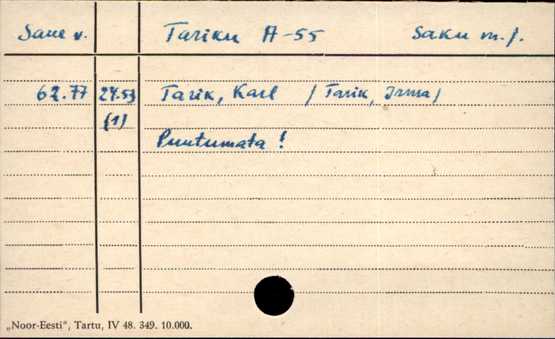 Saue v. Tariku A-55 Saku m.j.
62.77 27.53 Tarik, Karl / Tarik, Irma /
(1)
Puutumata !
„Noor-Eesti", Tartu, IV 48. 349. 10.000.